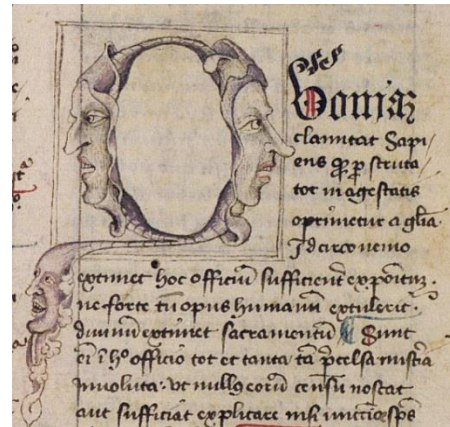 Quoniaz
clamitat Sapi/
ens ꝙ ꝑscruta/
tor magestatis
oprimetur a gl̃ia.
Idcirco nemo
extimet hoc officiũ sufficient̃ exposituz.
ne forte tñ opus humanũ extulerit.
diuinũ extimet sacramentũ Sunt
ẽi ĩ hͦ officio tot et tanta tã p̃celsa mist̃ia
Inuoluta: vt nullꝰ eorũ censũ noscat
aut sufficiat explicare nisi unctio sp̃s